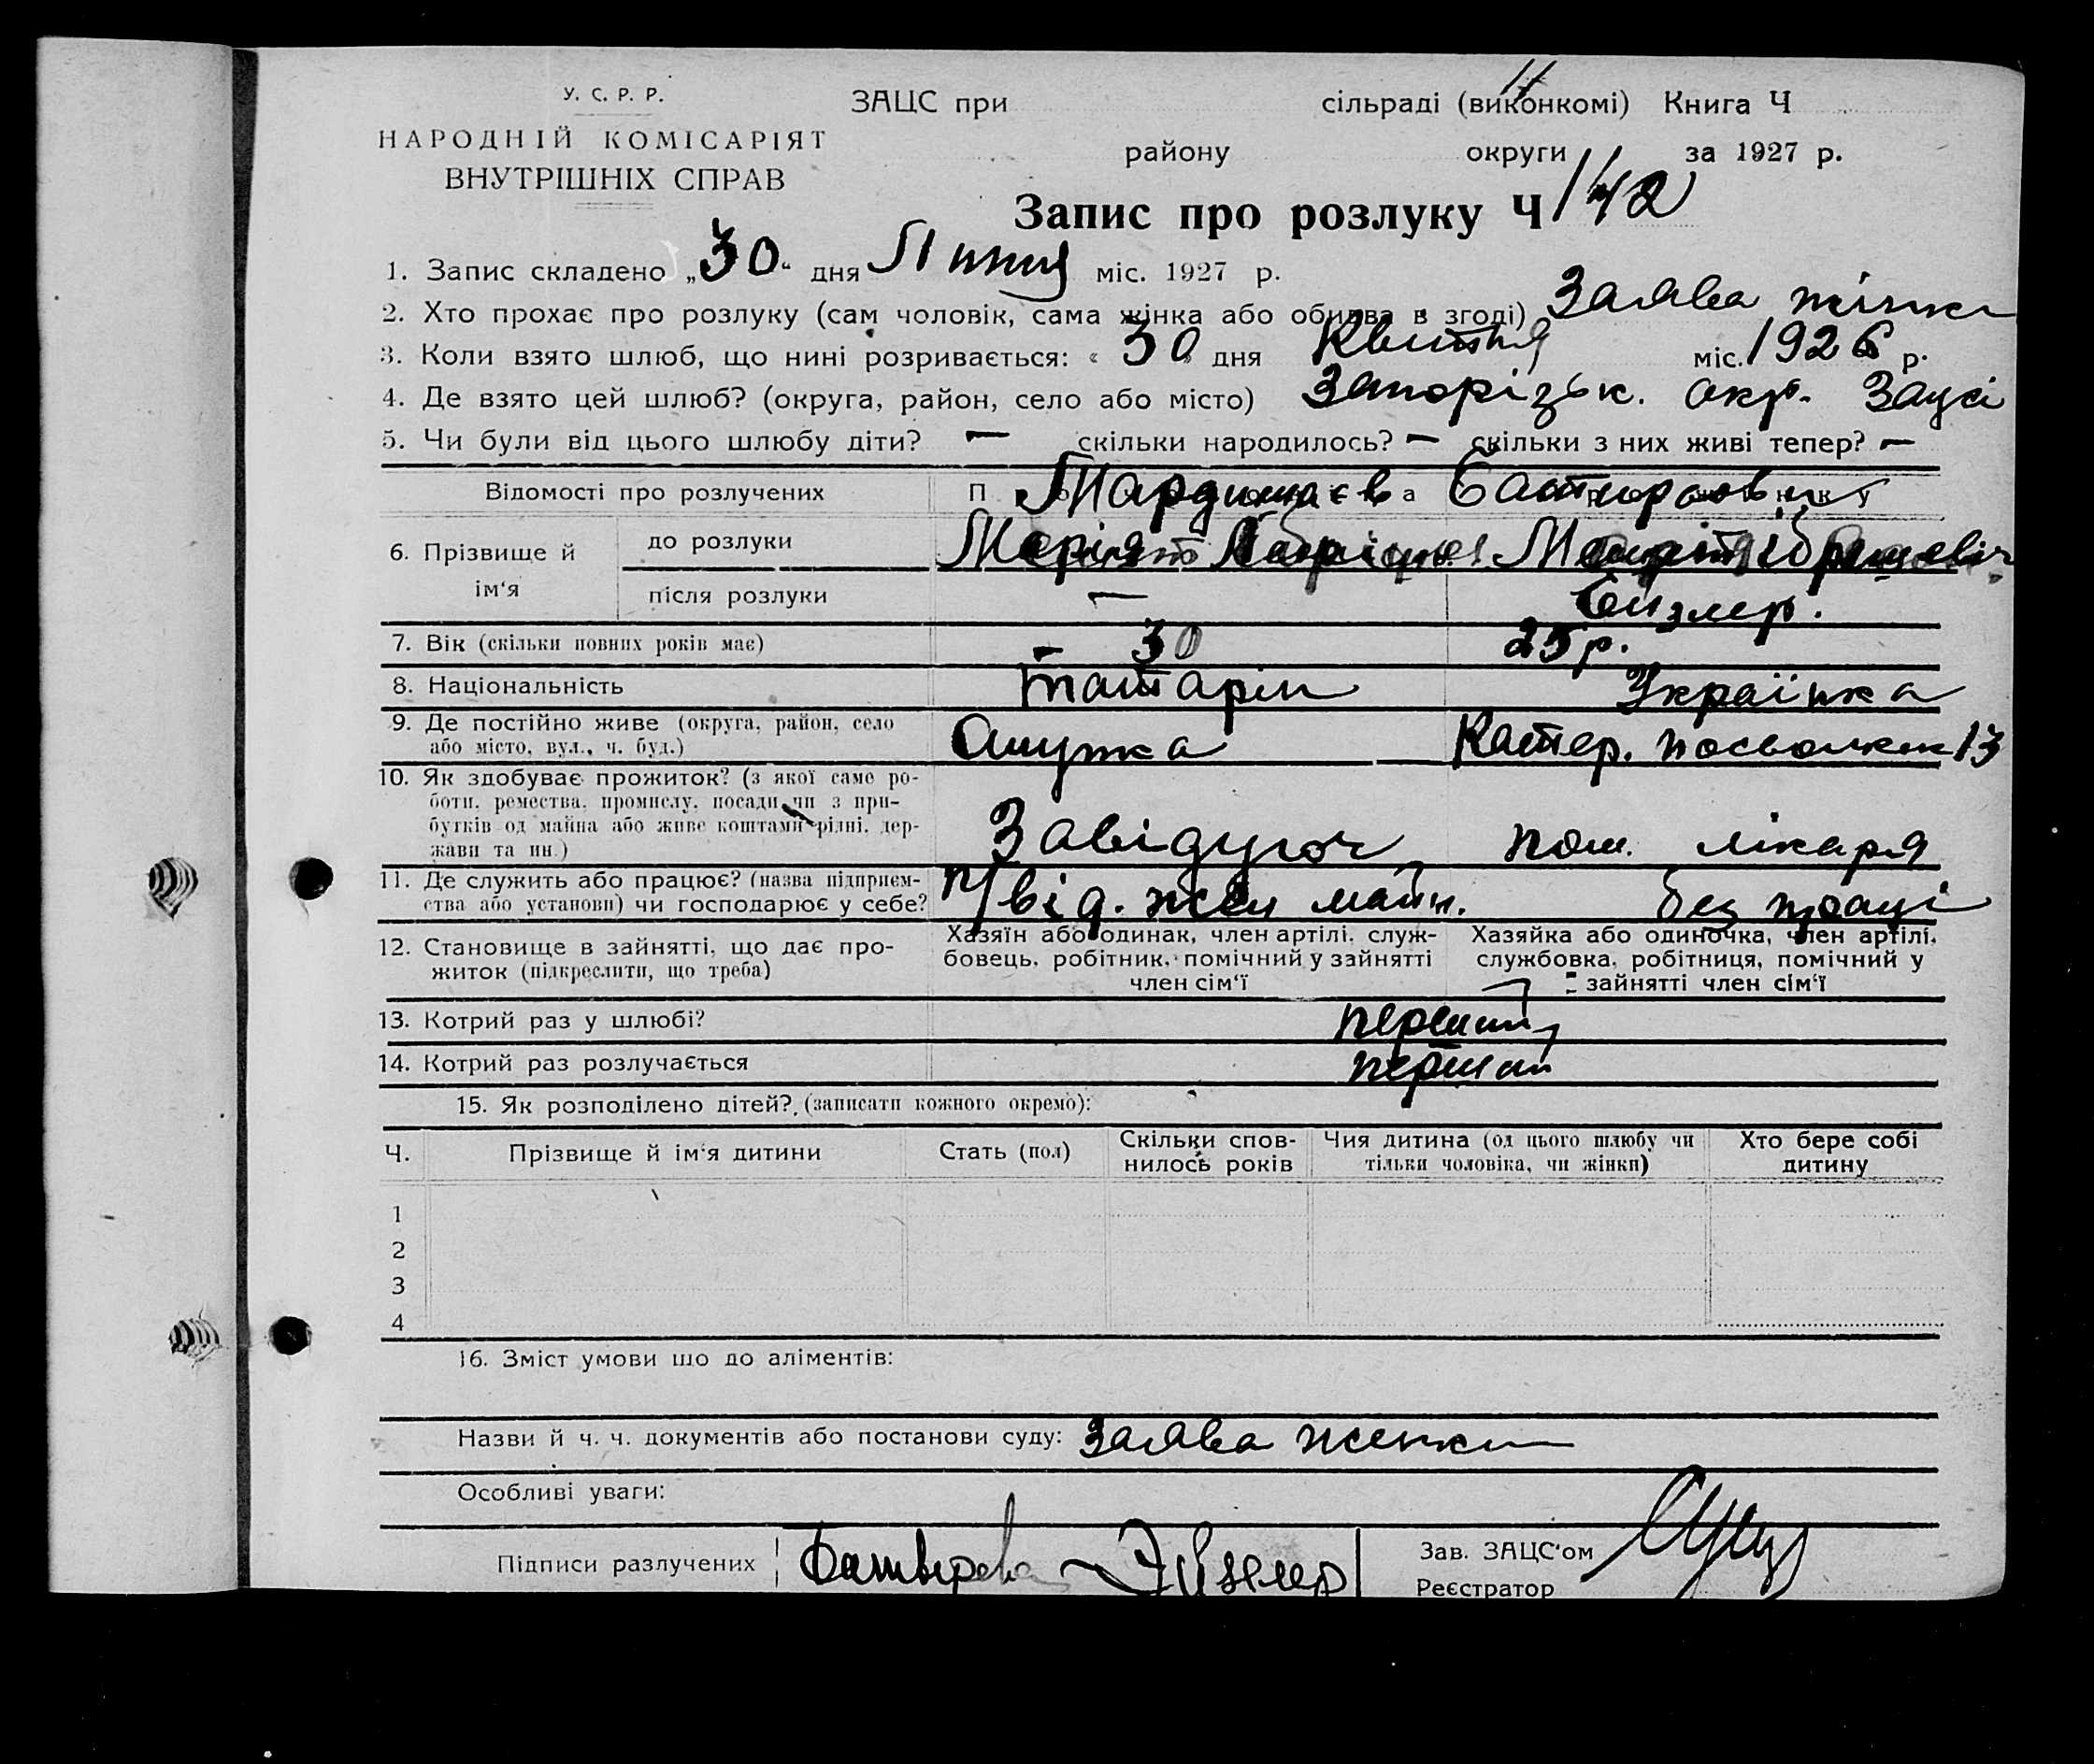 У. С. Р. Р.
НАРОДНІЙ КОМІСАРІЯТ
ВНУТРІШНІХ СПРАВ
ЗАЦС при сільраді (виконкомі) Книга Ч
району округи за 1927 р.
Запис про розлуку Ч 142
1. Запис складено „30“ дня Липня міс. 1927 р.
2. Хто прохає про розлуку (сам чоловік, сама жінка або обидва в згоді) Заява жінки
3. Коли взято шлюб, що нині розривається: „30“ дня Квітня міс. 1926 р.
4. Де взято цей шлюб? (округа, район, село або місто) Запорізьк. окр. Зацсі
5. Чи були від цього шлюбу діти? — скільки народилось? — скільки з них живі тепер? —
Відомості про розлучених
6. Прізвище й ім‘я
до розлуки
після розлуки — Ейзлер.
7. Вік (скільки повних років має) 30 25 р.
8. Національність татарін Українка
9. Де постійно живе (округа, район, село або місто, вул., ч. буд.) 13
10. Як здобуває прожиток? (з якої саме роботи, ремества, промислу, посади чи з прибутків од майна або живе коштами рідні, держави та ин.) Завідуюч пом. лікаря
11. Де служить або працює? (назва підприємства або установи) чи господарює у себе? без праці
12. Становище в зайнятті, що дає прожиток (підкреслити, що треба)
Хазяїн або одинак, член артілі, службовець, робітник, помічний у зайнятті член сім‘ї
Хазяйка або одиночка, член артілі, службовка, робітниця, помічний у зайнятті член сім‘ї
13. Котрий раз у шлюбі? перший
14. Котрий раз розлучається перший
15. Як розподілено дітей? (записати кожного окремо):
Ч. Прізвище й ім‘я дитини Стать (пол) Скільки сповнилось років Чия дитина (од цього шлюбу чи тільки чоловіка, чи жінки) Хто бере собі дитину
1
2
3
4
16. Зміст умови що до аліментів:
Назви й ч. ч. документів або постанови суду: Заява женки
Особливі уваги:
Підписи разлучених Эйзлер
Зав. ЗАЦС‘ом
Реєстратор